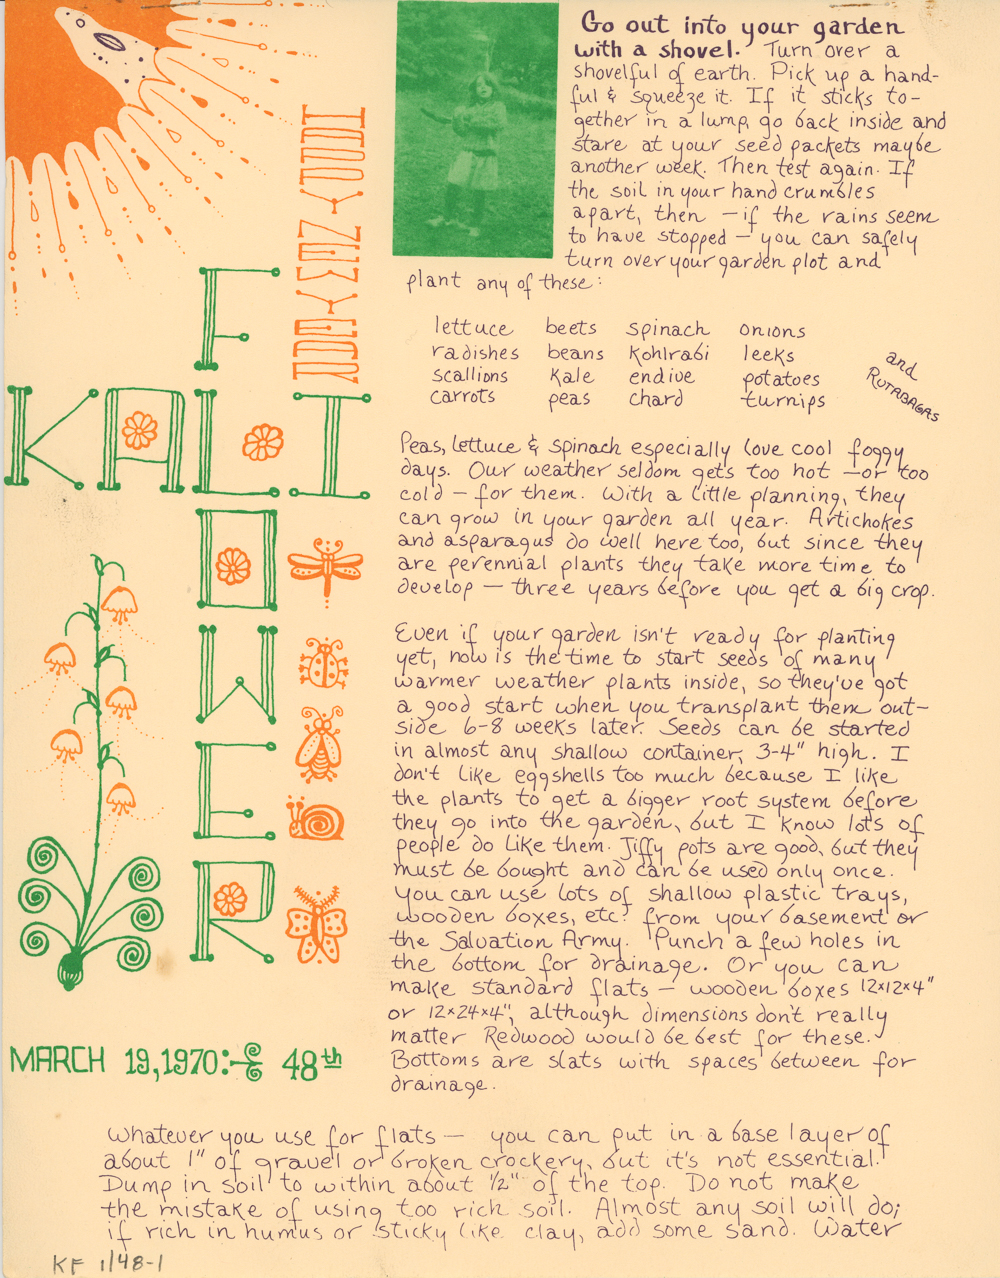 Go out into your garden
with a shovel. Turn over a
shovelful of earth. Pick up a hand-
ful & squeeze it. If it sticks to-
gether in a lump, go back inside and
stare at your seed packets maybe
another week. Then test again. If
the soil in your hand crumbles
apart, then — if the rains seem
to have stopped — you can safely
turn over your garden plot and
plant any of these:
lettuce beets spinach onions
radishes beans kohlrabi leeks
scallions kale endive potatoes
carrots peas chard turnips
and
RUTABAGAS
F
KALI
O
W
E
R
Peas, lettuce & spinach especially love cool foggy
days. Our weather seldom gets too hot — or too
cold — for them. With a little planning, they
can grow in your garden all year. Artichokes
and asparagus do well here too, but since they
are perennial plants they take more time to
develop — three years before you get a big crop.
Even if your garden isn't ready for planting
yet, now is the time to start seeds of many
warmer weather plants inside, so they've got
a good start when you transplant them out-
side 6-8 weeks later. Seeds can be started
in almost any shallow container, 3-4" high. I
don't like eggshells too much because I like
the plants to get a bigger root system before
they go into the garden, but I know lots of
people do like them. Jiffy pots are good, but they
must be bought and can be used only once.
You can use lots of shallow plastic trays,
wooden boxes, etc. from your basement or
the Salvation Army. Punch a few holes in
the bottom for drainage. Or you can
make standard flats — wooden boxes 12x12x4"
or 12x24x4", although dimensions don't really
matter. Redwood would be best for these.
Bottoms are slats with spaces between for
drainage.
MARCH 19, 1970: 48th
Whatever you use for flats — you can put in a base layer of
about 1" of gravel or broken crockery, but it's not essential.
Dump in soil to within about 1/2" of the top. Do not make
the mistake of using too rich soil. Almost any soil will do;
if rich in humus or sticky like clay, add some sand. Water
KF 1/48-1